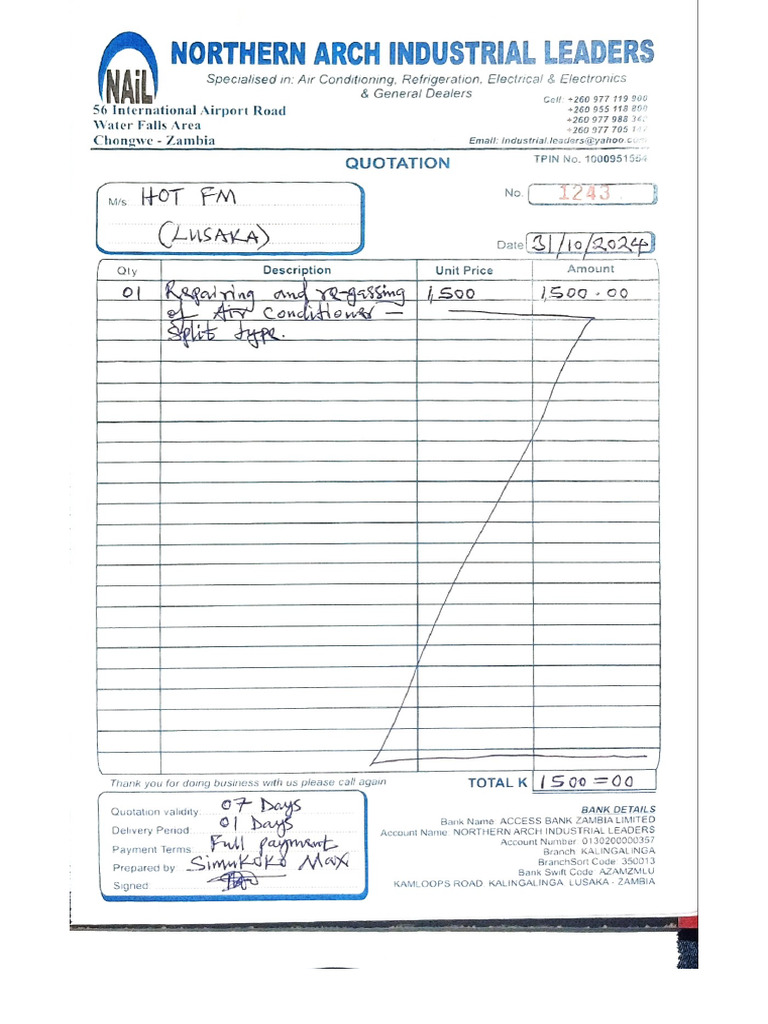 NAiL
NORTHERN ARCH INDUSTRIAL LEADERS
Specialised in: Air Conditioning, Refrigeration, Electrical & Electronics
& General Dealers
56 International Airport Road
Water Falls Area
Chongwe - Zambia
Cell: +260 977 119 900
+260 955 118 800
+260 977 988 342
+260 977 705
Email: industrial.leaders@yahoo.com
QUOTATION
TPIN No. 1000951564
M/s HOT FM
(LUSAKA)
No. 1243
Date 31/10/2024
Qty Description Unit Price Amount
01 Repairing and re-gassing 1,500 1,500.00
of Air Conditioner –
Split type.
Thank you for doing business with us please call again
TOTAL K 1500=00
Quotation validity: 07 Days
Delivery Period: 01 Days
Payment Terms: Full payment
Prepared by: Simukoko Max
Signed:
BANK DETAILS
Bank Name: ACCESS BANK ZAMBIA LIMITED
Account Name: NORTHERN ARCH INDUSTRIAL LEADERS
Account Number 0130200000357
Branch KALINGALINGA
BranchSort Code 350013
Bank Swift Code AZAMZMLU
KAMLOOPS ROAD KALINGALINGA LUSAKA - ZAMBIA